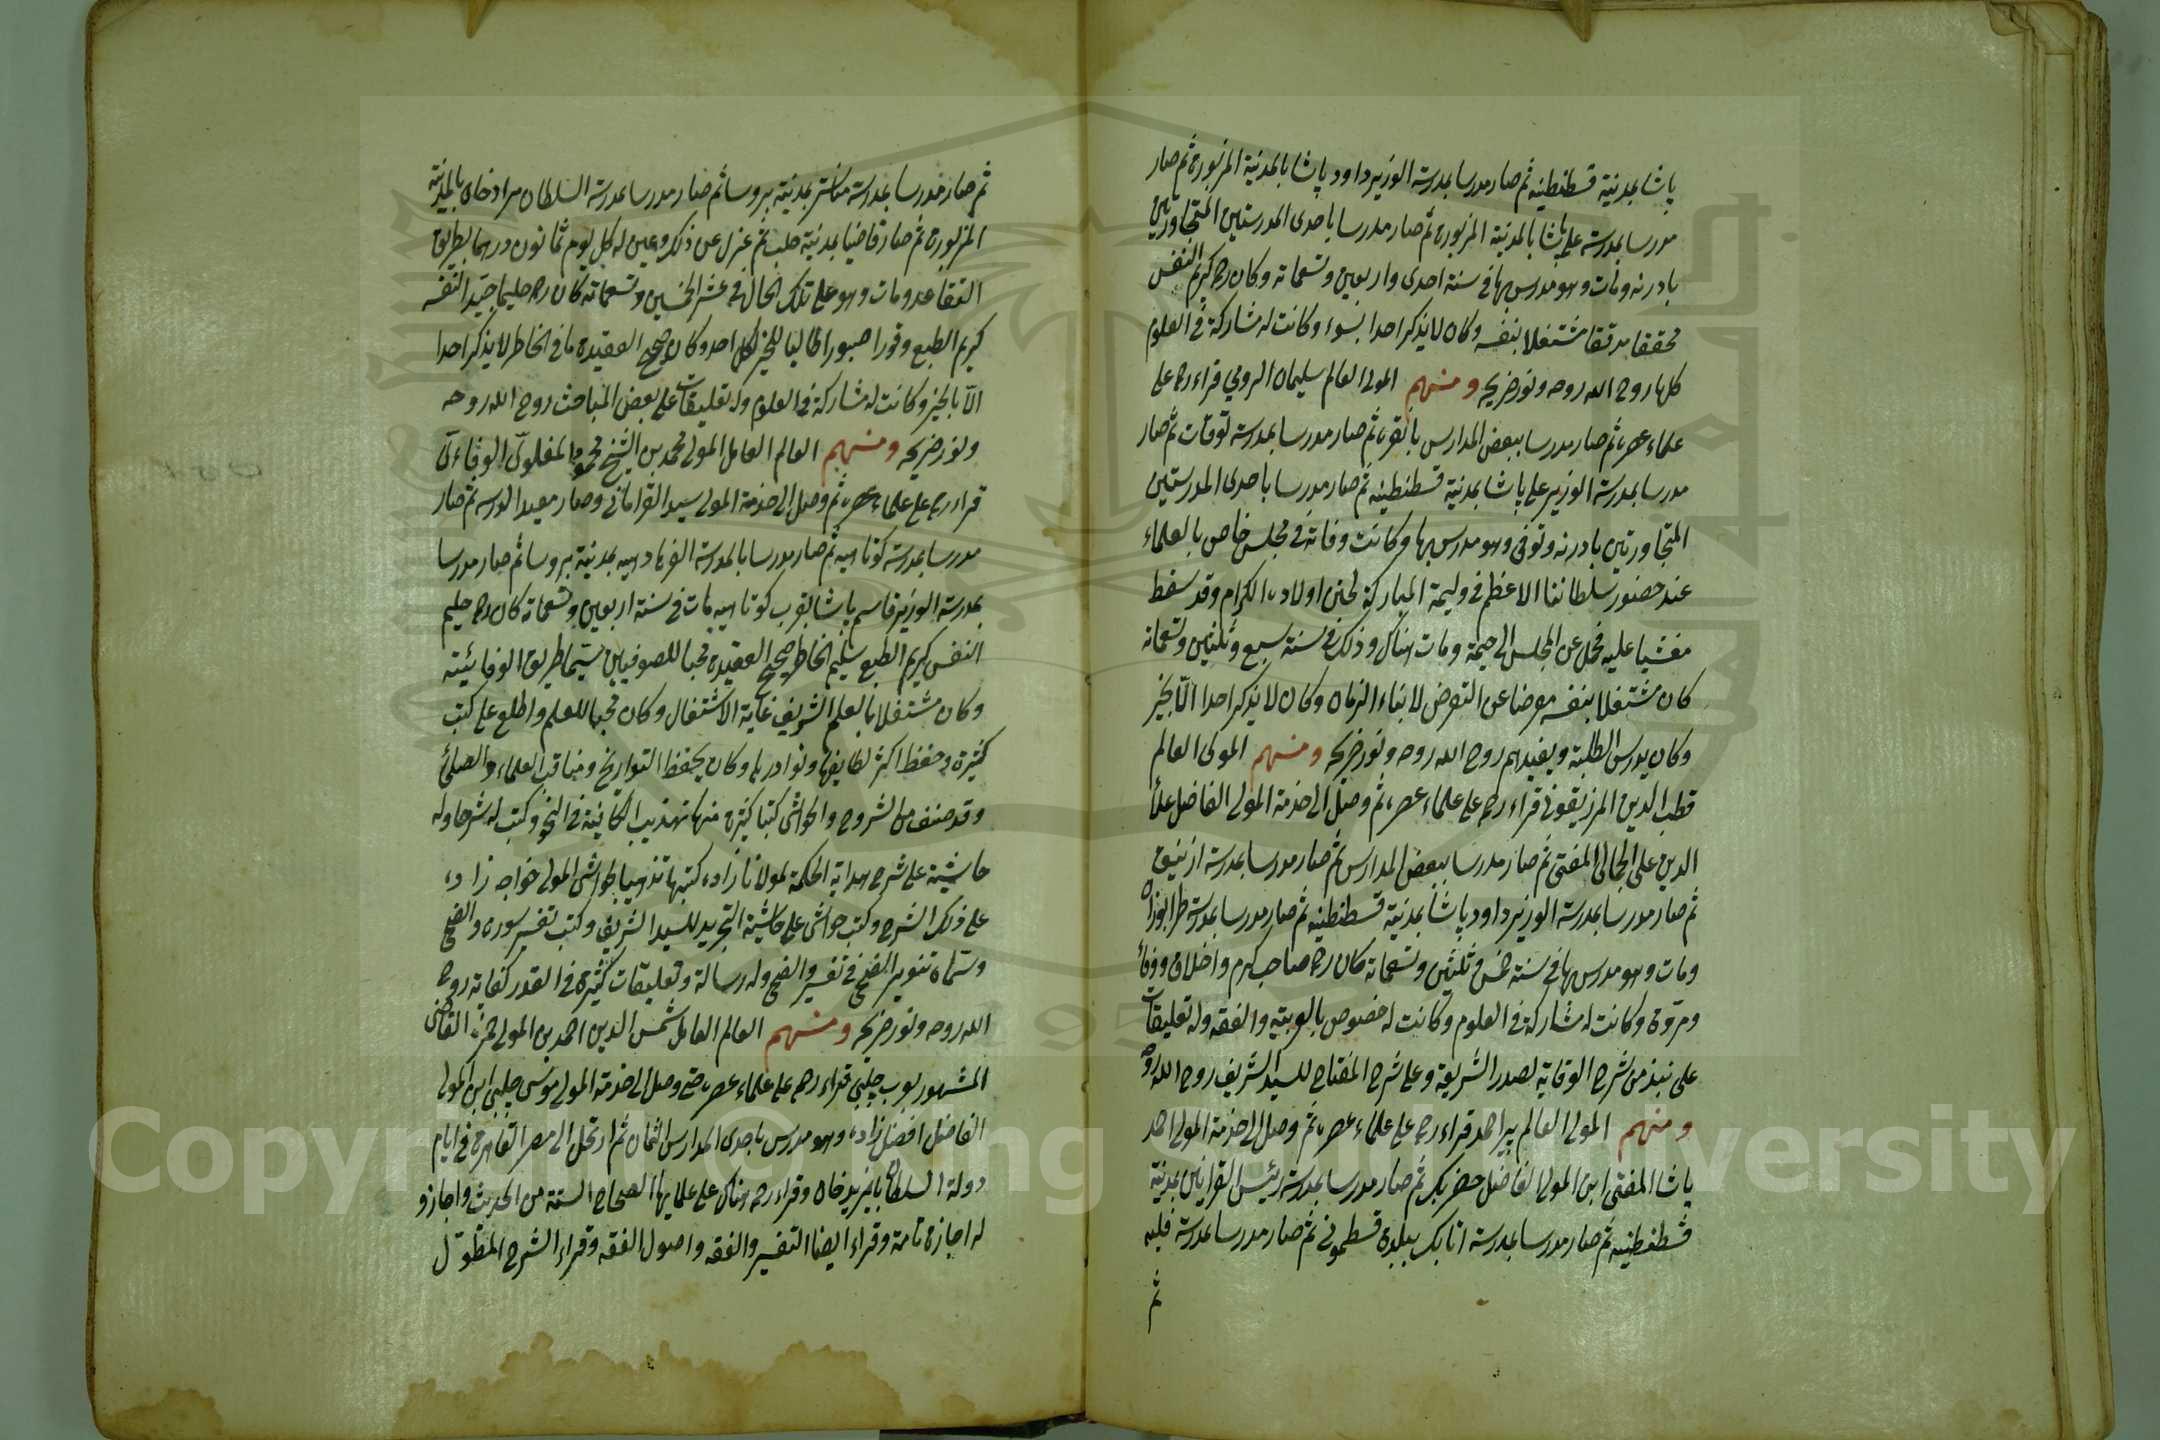 پاشا بمدينة قسطنطنيه ثم صار مدرسا بمدرسة الوزير داود پاشا بالمدنية المزبورة ثم صار
مدرسا بمدرسة علي پاشا بالمدنية المزبورة ثم صار مدرسا باحدى المدرستين المتجاورتين
بادرنه ومات وهو مدرس بها في سنة احدى واربعين وتسعمائة وكان رحمه كريم النفس
محققا مدققا مشتغلا بنفسه وكان لا يذكر احدا بسوء وكانت له مشاركة في العلوم
كلها روح الله روحه ونور ضريحه ومنهم المولى العالم سليمان الرومي قراء رحمه على
علماء عصره ثم صار مدرسا ببعض المدارس بانقره ثم صار مدرسا بمدرسة توقات ثم صار
مدرسا بمدرسة الوزير علي پاشا بمدنية قسطنطنيه ثم صار مدرسا باحدى المدرستين
المتجاورتين بادرنه وتوفى وهو مدرس بها وكانت وفاته في مجلس خاص بالعلماء
عند حضور سلطاننا الاعظم في وليمة المباركة لختن اولاده الكرام وقد سقط
مغشيا عليه فحمل عن المجلس الى خيمة ومات هناك وذلك في سنة سبع وثلثين وتسعمائة
كان مشتغلا بنفسه معرضا عن التعرض لابناء الزمان وكان لا يذكر احدا الّا بخير
وكان يدرس الطلبة ويفيدهم روح الله روحه ونور ضريحه ومنهم المولى العالم
قطب الدين المرزيقوني قراء رحمه على علماء عصره ثم وصل الى خدمة المولى الفاضل علاء
الدين على الجمالى المفتي ثم صار مدرسا ببعض المدارس ثم صار مدرسا بمدرسة ازنيق
ثم صار مدرسا بمدرسة الوزير داود پاشا بمدنية قسطنطنيه ثم صار مدرسا بمدرسة طرابوزان
ومات وهو مدرس بها في سنة خمس وثلثين وتسعمائة كان رحمه صاحب كرم واخلاق ووفاء
ومروة وكانت له مشاركة في العلوم وكانت له خصوص بالعربية والفقه وله تعليقات
على نبذ من شرح الوقاية لصدر الشريعة وعلى شرح المفتاح للسيد الشريف روح الله روحه
ومنهم المولى العالم پير احمد قراء رحمه على علماء عصره ثم وصل الى خدمة المولى احمد
پاشا المفتى ابن المولى الفاضل خضر بك ثم صار مدرسا بمدرسة رئيس القرانين بمدنية
قسطنطنيه ثم صار مدرسا بمدرسة اتابك ببلدة قسطموني ثم صار مدرسا بمدرسة فلبه
ثم
ثم صار مدرسا بمدرسة مناستر بمدنية بروسا ثم صار مدرسا بمدرسة السلطان مراد خان بالمدنية
المزبورة ثم صار قاضيا بمدنية حلب ثم عزل عن ذلك وعين له كل يوم ثمانون درهما بطريق
التقاعد ومات وهو على تلك الحال في عشر الخمسين وتسعمائة كان رحمه حليما جيد النفس
كريم الطبع وقورا صبورا طالبا للخير لكل احد وكان صحيح العقيدة صافي الخاطر لا يذكر احدا
الّا بالخير وكانت له مشاركة في العلوم وله تعليقات على بعض المباحث روح الله روحه
ونور ضريحه ومنهم العالم العامل المولى محمد بن الشيخ محمود المغلوي الوفائي
قراء رحمه على علماء عصره ثم وصل الى خدمة المولى سيد القراماني وصار معيدا لدرسه ثم صار
مدرسا بمدرسة كوتاهيه ثم صار مدرسا بالمدرسة الفرهاديه بمدنية بروسا ثم صار مدرسا
بمدرسة الوزير قاسم پاشا بقرب كوتاهيه مات في سنة اربعين وتسعمائة كان رحمه حليم
النفس كريم الطبع سليم الخاطر صحيح العقيدة محبا للصوفية سيما طريق الوفائية
وكان مشتغلا بالعلم الشريف غاية الاشتغال وكان محبا للعلم واطلع على كتب
كثيرة وحفظ اكثر لطايفها ونوادرها وكان يحفظ التواريخ ومناقب العلماء والصلحاء
وقد صنف من الشروح والحواشى كتبا كثيرة منها تهذيب الكافية في النحو وكتب له شرحا وله
حاشية على شرح هداية الحكمة لمولانا زاده كتبها تذهيبا لحواشى المولى خواجه زاده
على ذلك الشرح وكتب حواشى على حاشية التجريد للسيد الشريف وكتب تفسير سورة والضحى
وسماه تنوير الضحى في تفسير والضحى وله رسالة وتعليقات كثيرة في القدر كفاية روح
الله روحه ونور ضريحه ومنهم العالم العامل شمس الدين احمد بن المولى حمزة القاضى
المشهور بعرب چلبي قراء رحمه على علماء عصره حتى وصل الى خدمة المولى موسى چلبي ابن المولى
الفاضل افضل زاده وهو مدرس باحدى المدارس الثمان ثم ارتحل الى مصر القاهرة في ايام
دولة السلطان بايزيد خان وقراء رحمه هناك على علمايها الصحاح الستة من الحديث واجازو
له اجازة تامة وقراء ايضا التفسير والفقه واصول الفقه وقراء الشرح المطوّل
Copyright © King Saud University